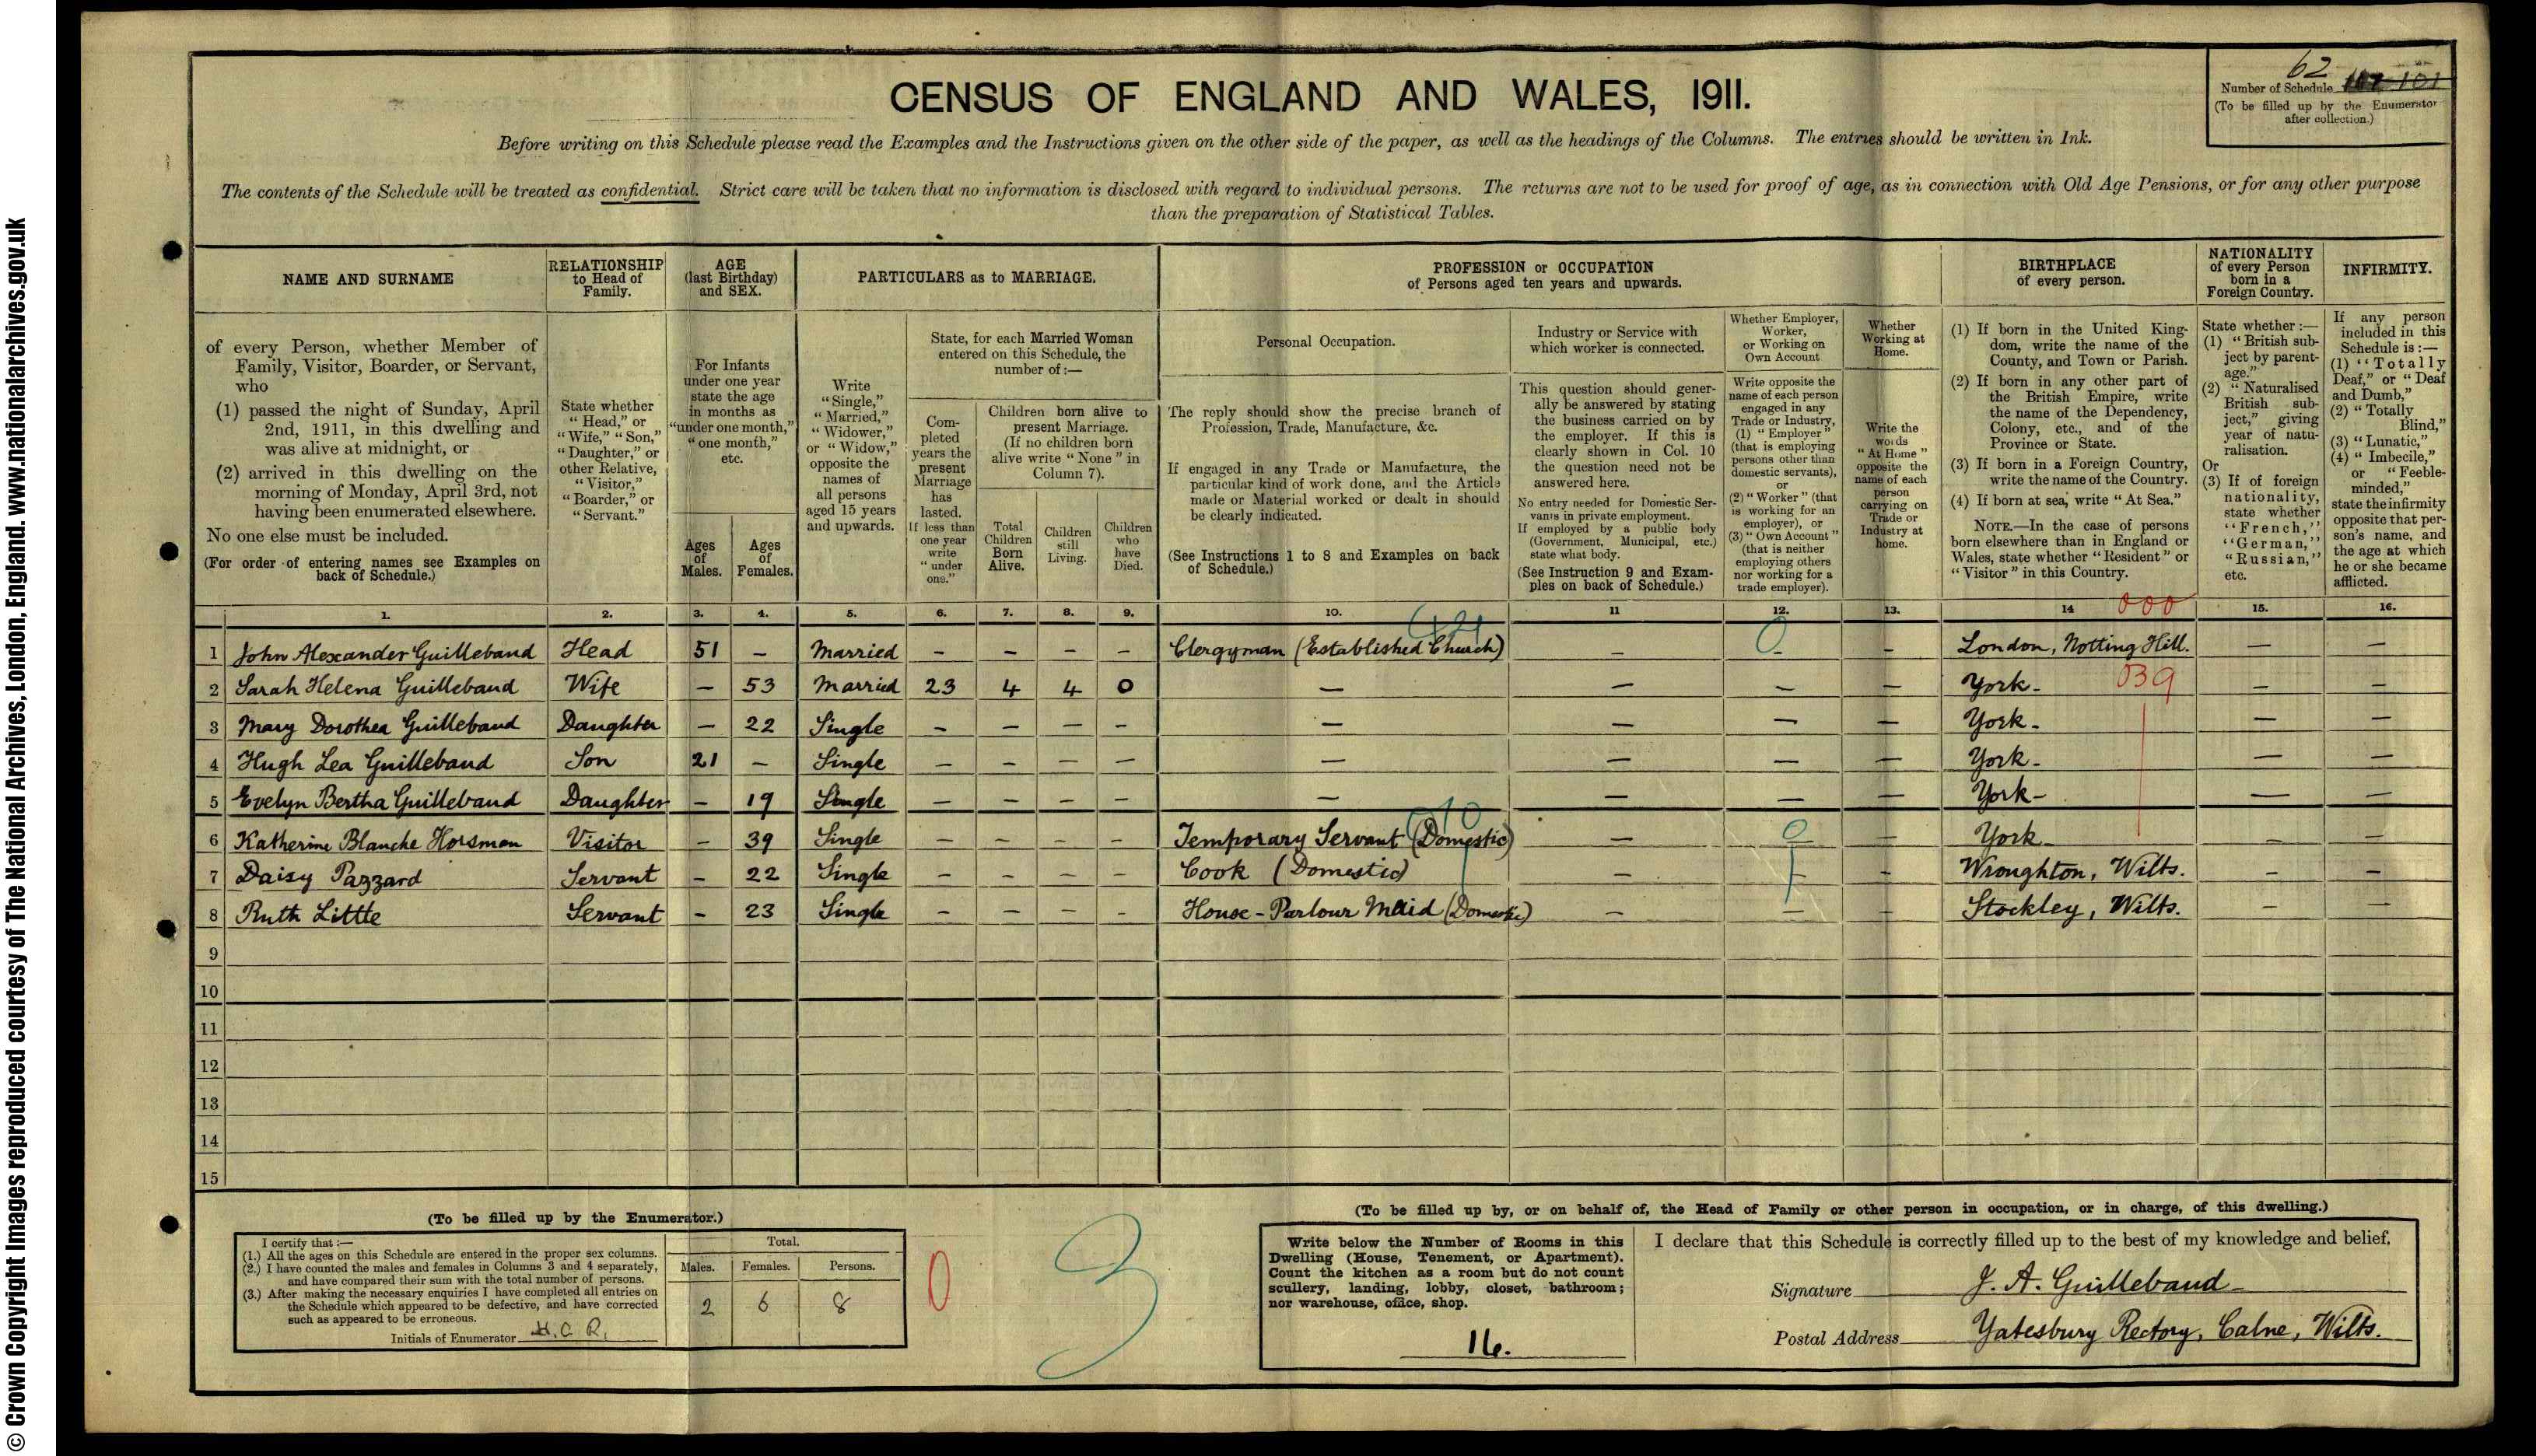 © Crown Copyright Images reproduced courtesy of The National Archives, London, England. www.nationalarchives.gov.uk
CENSUS OF ENGLAND AND WALES, 1911.
62
Number of Schedule 101
(To be filled up by the Enumerator
after collection.)
Before writing on this Schedule please read the Examples and the Instructions given on the other side of the paper, as well as the headings of the Columns. The entries should be written in Ink.
The contents of the Schedule will be treated as confidential. Strict care will be taken that no information is disclosed with regard to individual persons. The returns are not to be used for proof of age, as in connection with Old Age Pensions, or for any other purpose
than the preparation of Statistical Tables.
NAME AND SURNAME
of every Person, whether Member of
Family, Visitor, Boarder, or Servant,
who
(1) passed the night of Sunday, April
2nd, 1911, in this dwelling and
was alive at midnight, or
(2) arrived in this dwelling on the
morning of Monday, April 3rd, not
having been enumerated elsewhere.
No one else must be included.
(For order of entering names see Examples on
back of Schedule.)
RELATIONSHIP
to Head of
Family.
State whether
"Head," or
"Wife," "Son,"
"Daughter," or
other Relative,
"Visitor,"
"Boarder," or
"Servant."
AGE
(last Birthday)
and SEX.
For Infants
under one year
state the age
in months as
"under one month,"
"one month,"
etc.
Ages
of
Males.
Ages
of
Females.
PARTICULARS as to MARRIAGE.
Write
"Single,"
"Married,"
"Widower,"
or "Widow,"
opposite the
names of
all persons
aged 15 years
and upwards.
State, for each Married Woman
entered on this Schedule, the
number of:—
Com-
pleted
years the
present
Marriage
has
lasted.
If less than
one year
write
"under
one."
Children born alive to
present Marriage.
(If no children born
alive write "None" in
Column 7).
Total
Children
Born
Alive.
Children
still
Living.
Children
who
have
Died.
PROFESSION or OCCUPATION
of Persons aged ten years and upwards.
Personal Occupation.
The reply should show the precise branch of
Profession, Trade, Manufacture, &c.
If engaged in any Trade or Manufacture, the
particular kind of work done, and the Article
made or Material worked or dealt in should
be clearly indicated.
(See Instructions 1 to 8 and Examples on back
of Schedule.)
Industry or Service with
which worker is connected.
This question should gener-
ally be answered by stating
the business carried on by
the employer. If this is
clearly shown in Col. 10
the question need not be
answered here.
No entry needed for Domestic Ser-
vants in private employment.
If employed by a public body
(Government, Municipal, etc.)
state what body.
(See Instruction 9 and Exam-
ples on back of Schedule.)
Whether Employer,
Worker,
or Working on
Own Account
Write opposite the
name of each person
engaged in any
Trade or Industry,
(1) "Employer"
(that is employing
persons other than
domestic servants),
or
(2) "Worker" (that
is working for an
employer), or
(3) "Own Account"
(that is neither
employing others
nor working for a
trade employer).
Whether
Working at
Home.
Write the
words
"At Home"
opposite the
name of each
person
carrying on
Trade or
Industry at
home.
BIRTHPLACE
of every person.
(1) If born in the United King-
dom, write the name of the
County, and Town or Parish.
(2) If born in any other part of
the British Empire, write
the name of the Dependency,
Colony, etc., and of the
Province or State.
(3) If born in a Foreign Country,
write the name of the Country.
(4) If born at sea, write "At Sea."
NOTE.—In the case of persons
born elsewhere than in England or
Wales, state whether "Resident" or
"Visitor" in this Country.
NATIONALITY
of every Person
born in a
Foreign Country.
State whether:—
(1) "British sub-
ject by parent-
age."
(2) "Naturalised
British sub-
ject," giving
year of natu-
ralisation.
Or
(3) If of foreign
nationality,
state whether
"French,"
"German,"
"Russian,"
etc.
INFIRMITY.
If any person
included in this
Schedule is:—
(1) "Totally
Deaf," or "Deaf
and Dumb,"
(2) "Totally
Blind,"
(3) "Lunatic,"
(4) "Imbecile,"
or "Feeble-
minded,"
state the infirmity
opposite that per-
son's name, and
the age at which
he or she became
afflicted.
1. 2. 3. 4. 5. 6. 7. 8. 9. 10. 11 12. 13. 14 000 15. 16.
1 John Alexander Guillebaud Head 51 – Married – – – – Clergyman (Established Church) – 0 – – London, Notting Hill. – –
2 Sarah Helena Guillebaud Wife – 53 Married 23 4 4 0 – – – – York – 039 – –
3 Mary Dorothea Guillebaud Daughter – 22 Single – – – – – – – – York – – –
4 Hugh Lea Guillebaud Son 21 – Single – – – – – – – – York – – –
5 Evelyn Bertha Guillebaud Daughter – 19 Single – – – – – – – – York – – –
6 Katherine Blanche Horsman Visitor – 39 Single – – – – Temporary Servant (Domestic) – 0 – York – – –
7 Daisy Pazzard Servant – 22 Single – – – – Cook (Domestic) – – – Wroughton, Wilts. – –
8 Ruth Little Servant – 23 Single – – – – House-Parlour Maid (Domestic) – – – Stockley, Wilts. – –
9
10
11
12
13
14
15
(To be filled up by the Enumerator.)
I certify that:—
(1.) All the ages on this Schedule are entered in the proper sex columns.
(2.) I have counted the males and females in Columns 3 and 4 separately,
and have compared their sum with the total number of persons.
(3.) After making the necessary enquiries I have completed all entries on
the Schedule which appeared to be defective, and have corrected
such as appeared to be erroneous.
Initials of Enumerator H.C.R.
Total.
Males. Females. Persons.
2 6 8
0
3
(To be filled up by, or on behalf of, the Head of Family or other person in occupation, or in charge, of this dwelling.)
Write below the Number of Rooms in this
Dwelling (House, Tenement, or Apartment).
Count the kitchen as a room but do not count
scullery, landing, lobby, closet, bathroom;
nor warehouse, office, shop.
16.
I declare that this Schedule is correctly filled up to the best of my knowledge and belief.
Signature J. A. Guillebaud
Postal Address Yatesbury Rectory, Calne, Wilts.